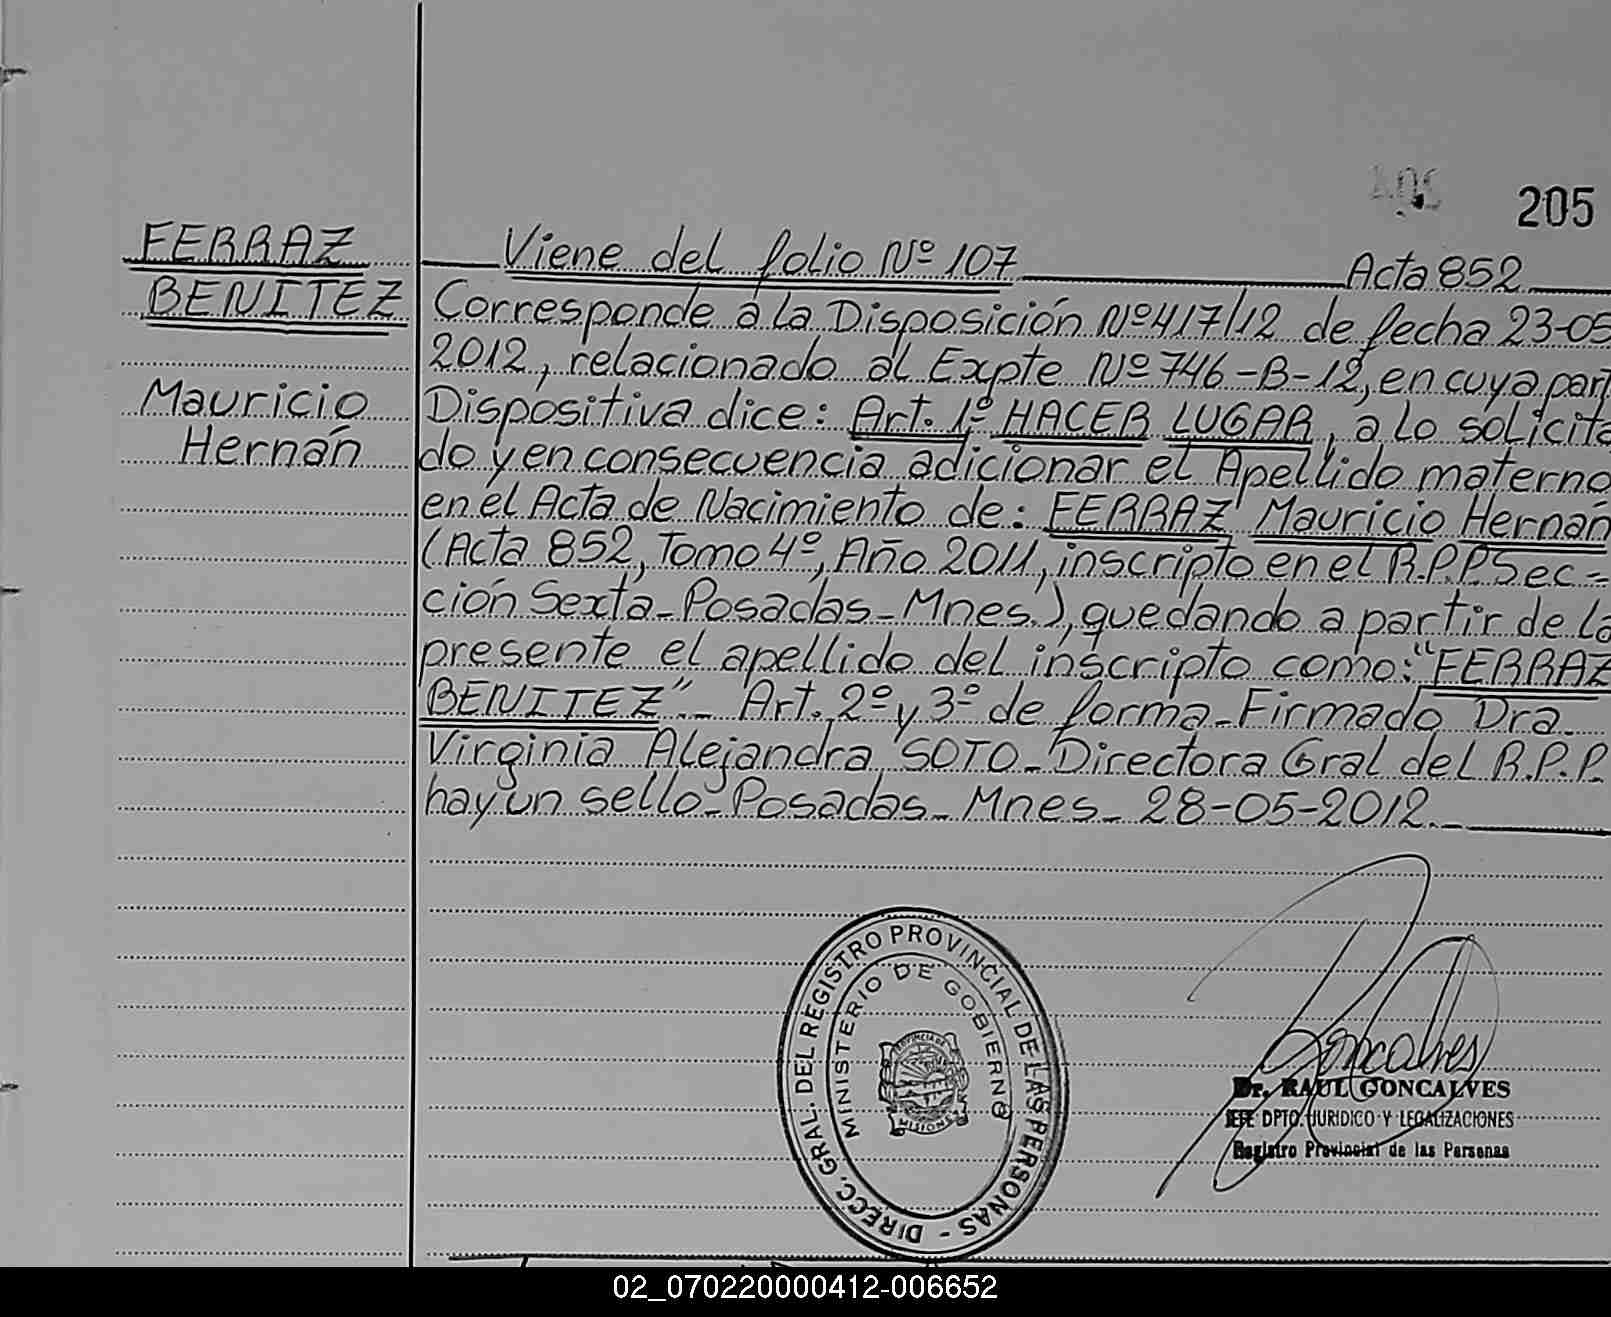 205
FERRAZ
BENITEZ
Mauricio
Hernán
Viene del folio Nº 107 Acta 852
Corresponde a la Disposición Nº 417/12 de fecha 23-05
2012, relacionado al Expte Nº 746-B-12, en cuya part
Dispositiva dice: Art. 1º HACER LUGAR, a lo solicita
do y en consecuencia adicionar el Apellido materno
en el Acta de Nacimiento de: FERRAZ Mauricio Hernán
(Acta 852, Tomo 4º, Año 2011, inscripto en el R.P.P. Sec=
ción Sexta-Posadas-Mnes.), quedando a partir de la
presente el apellido del inscripto como: "FERRAZ
BENITEZ".- Art. 2º y 3º de forma-Firmado Dra.
Virginia Alejandra SOTO-Directora Gral del R.P.P.
hay un sello-Posadas-Mnes-28-05-2012.-
DIRECC. GRAL. DEL REGISTRO PROVINCIAL DE LAS PERSONAS -
MINISTERIO DE GOBIERNO
PROVINCIA DE
MISIONES
Goncalves
Dr. RAUL GONCALVES
JEFE DPTO. JURIDICO Y LEGALIZACIONES
Registro Provincial de las Personas
02_070220000412-006652